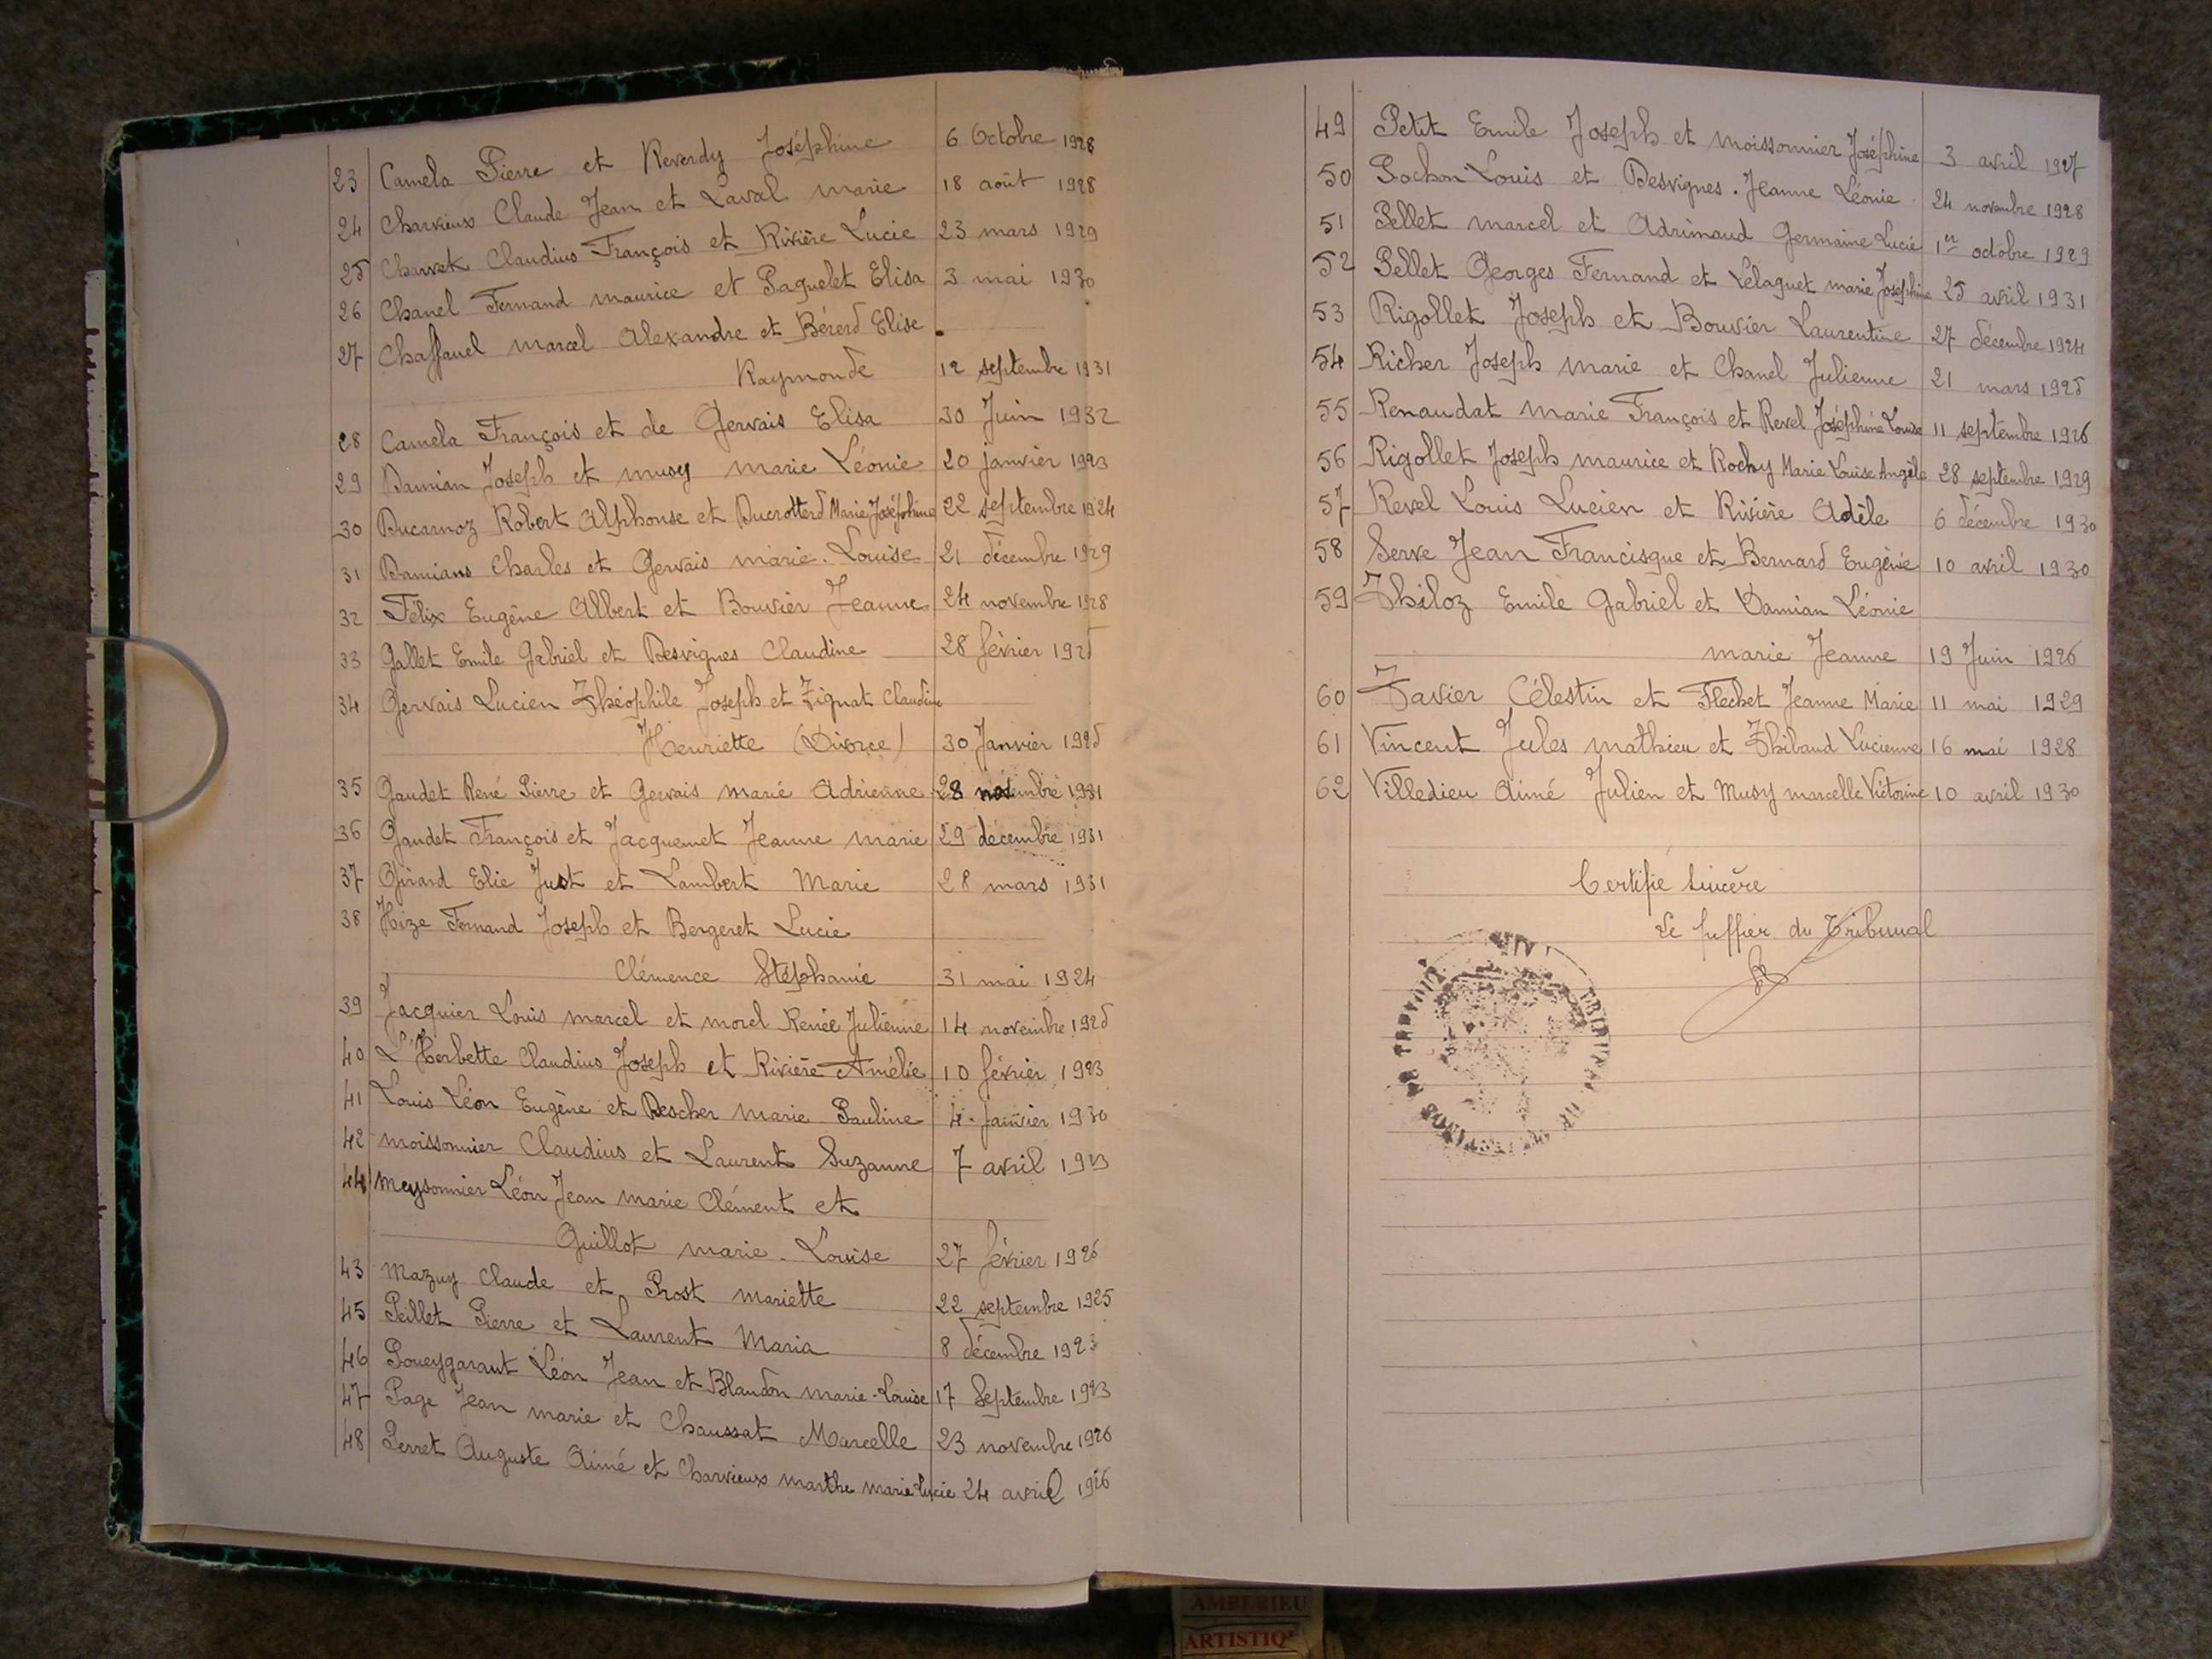 23 Camela Pierre et Reverdy Joséphine 6 Octobre 1928
24 Charvieux Claude Jean et Laval marie 18 août 1928
25 Charvet Claudius François et Rivière Lucie 23 mars 1929
26 Chanel Fernand maurice et Paquelet Elisa 3 mai 1930
27 Chaffanel marcel Alexandre et Bérerd Elise
Raymonde 12 septembre 1931
28 Camela François et de Gervais Elisa 30 Juin 1932
29 Damian Joseph et musy marie Léonie 20 janvier 1923
30 Ducarnoz Robert Alphonse et Ducrotterd Marie Joséphine 22 septembre 1924
31 Damians Charles et Gervais marie-Louise 21 décembre 1929
32 Félix Eugène Albert et Bouvier Jeanne 24 novembre 1928
33 Gallet Emile Gabriel et Desvignes Claudine 28 février 1925
34 Gervais Lucien Théophile Joseph et Tignat Claudine
Henriette (Divorce) 30 Janvier 1925
35 Gaudet René Pierre et Gervais marie Adrienne 28 novembre 1931
36 Gaudet François et Jacquemet Jeanne marie 29 décembre 1931
37 Girard Elie Just et Lambert Marie 28 mars 1931
38 Hize Fernand Joseph et Bergeret Lucie
Clémence Stéphanie 31 mai 1924
39 Jacquier Louis marcel et morel Renée Julienne 14 novembre 1925
40 L'Herbette Claudius Joseph et Rivière Amélie 10 février 1923
41 Louis Léon Eugène et Descher Marie Pauline 4 janvier 1930
42 moissonnier Claudius et Laurent Suzanne 7 avril 1923
44 meysonnier Léon Jean marie Clément et
Guillot marie-Louise 27 février 1926
43 mazuy Claude et Prost mariette 22 septembre 1925
45 Peillet Pierre et Laurent Maria 8 décembre 1923
46 Poueygaraut Léon Jean et Blandon marie-Louise 17 Septembre 1923
47 Page Jean marie et Chaussat Marcelle 23 novembre 1926
48 Perret Auguste Aimé et Charvieux marthe marie Lucie 24 avril 1926
49 Petit Emile Joseph et moissonnier Joséphine 3 avril 1927
50 Pochon Louis et Desvignes Jeanne Léonie 24 novembre 1928
51 Pellet marcel et Adrimaud Germaine Lucie 1er octobre 1929
52 Pellet Georges Fernand et Lélaguet marie Joséphine 25 avril 1931
53 Rigollet Joseph et Bouvier Laurentine 27 décembre 1924
54 Richer Joseph marie et Chanel Julienne 21 mars 1925
55 Renaudat marie François et Revel Joséphine Louise 11 septembre 1926
56 Rigollet Joseph maurice et Rochy Marie Louise Angèle 28 septembre 1929
57 Revel Louis Lucien et Rivière Adèle 6 décembre 1930
58 Serve Jean Francisque et Bernard Eugénie 10 avril 1930
59 Thiloz Emile Gabriel et Damian Léonie
marie Jeanne 19 Juin 1926
60 Tavier Célestin et Fléchet Jeanne Marie 11 mai 1929
61 Vincent Jules mathieu et Thibaud Lucienne 16 mai 1928
62 Villedieu Aimé Julien et Musy marcelle Victorine 10 avril 1930
Certifié sincère
Le Greffier du Tribunal
AMBERIEU
ARTISTIQ